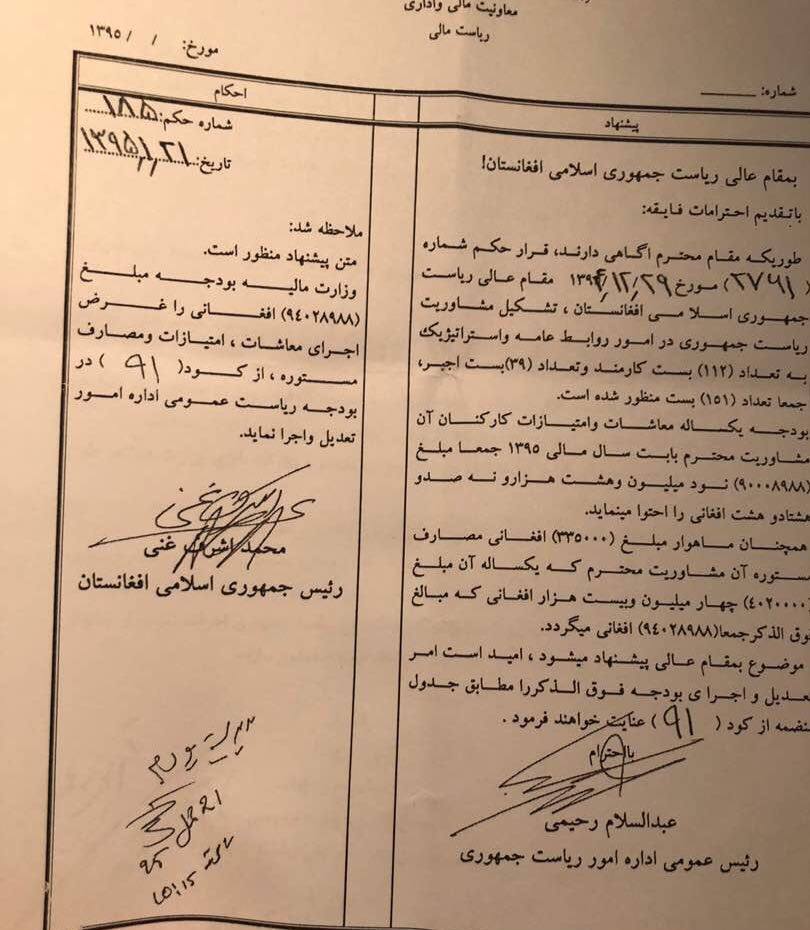 معاونیت مالی واداری
ریاست مالی
مورخ: / / ۱۳۹۵
شماره:
پیشنهاد
بمقام عالی ریاست جمهوری اسلامی افغانستان!
باتقدیم احترامات فایقه:
طوریکه مقام محترم اگاهی دارند، قرار حکم شماره
(۲۷۹۱) مورخ ۱۳۹۴/۱۲/۲۹ مقام عالی ریاست
جمهوری اسلامی افغانستان ، تشکیل مشاوریت
ریاست جمهوری در امور روابط عامه واستراتیژیك
به تعداد (۱۱۲) بست کارمند وتعداد (۳۹)بست اجیر،
جمعا تعداد (۱۵۱) بست منظور شده است.
بودجه یکساله معاشات وامتیازات کارکنان آن
مشاوریت محترم بابت سال مالی ۱۳۹۵ جمعا مبلغ
(۹۰۰۰۸۹۸۸) نود میلیون وهشت هزارو نه صدو
هشتادو هشت افغانی را احتوا مینماید.
همچنان ماهوار مبلغ (۳۳۵۰۰۰) افغانی مصارف
مستوره آن مشاوریت محترم که یکساله آن مبلغ
(۴۰۲۰۰۰۰) چهار میلیون وبیست هزار افغانی که مبالغ
فوق الذکرجمعا(۹۴۰۲۸۹۸۸) افغانی میگردد.
موضوع بمقام عالی پیشنهاد میشود ، امید است امر
تعدیل و اجرا ی بودجه فوق الذکررا مطابق جدول
منضمه از کود ( ۹۱ ) عنایت خواهند فرمود .
بااحترام
عبدالسلام رحیمی
رئیس عمومی اداره امور ریاست جمهوری
احکام
شماره حکم: ۱۸۵
تاریخ: ۱۳۹۵/۱/۲۱
ملاحظه شد:
متن پیشنهاد منظور است.
وزارت مالیه بودجه مبلغ
(۹۴۰۲۸۹۸۸) افغانی را غرض
اجرای معاشات ، امتیازات ومصارف
مستوره ، از کود( ۹۱ ) در
بودجه ریاست عمومی اداره امور
تعدیل واجرا نماید.
محمد اشرف غنی
رئیس جمهوری اسلامی افغانستان